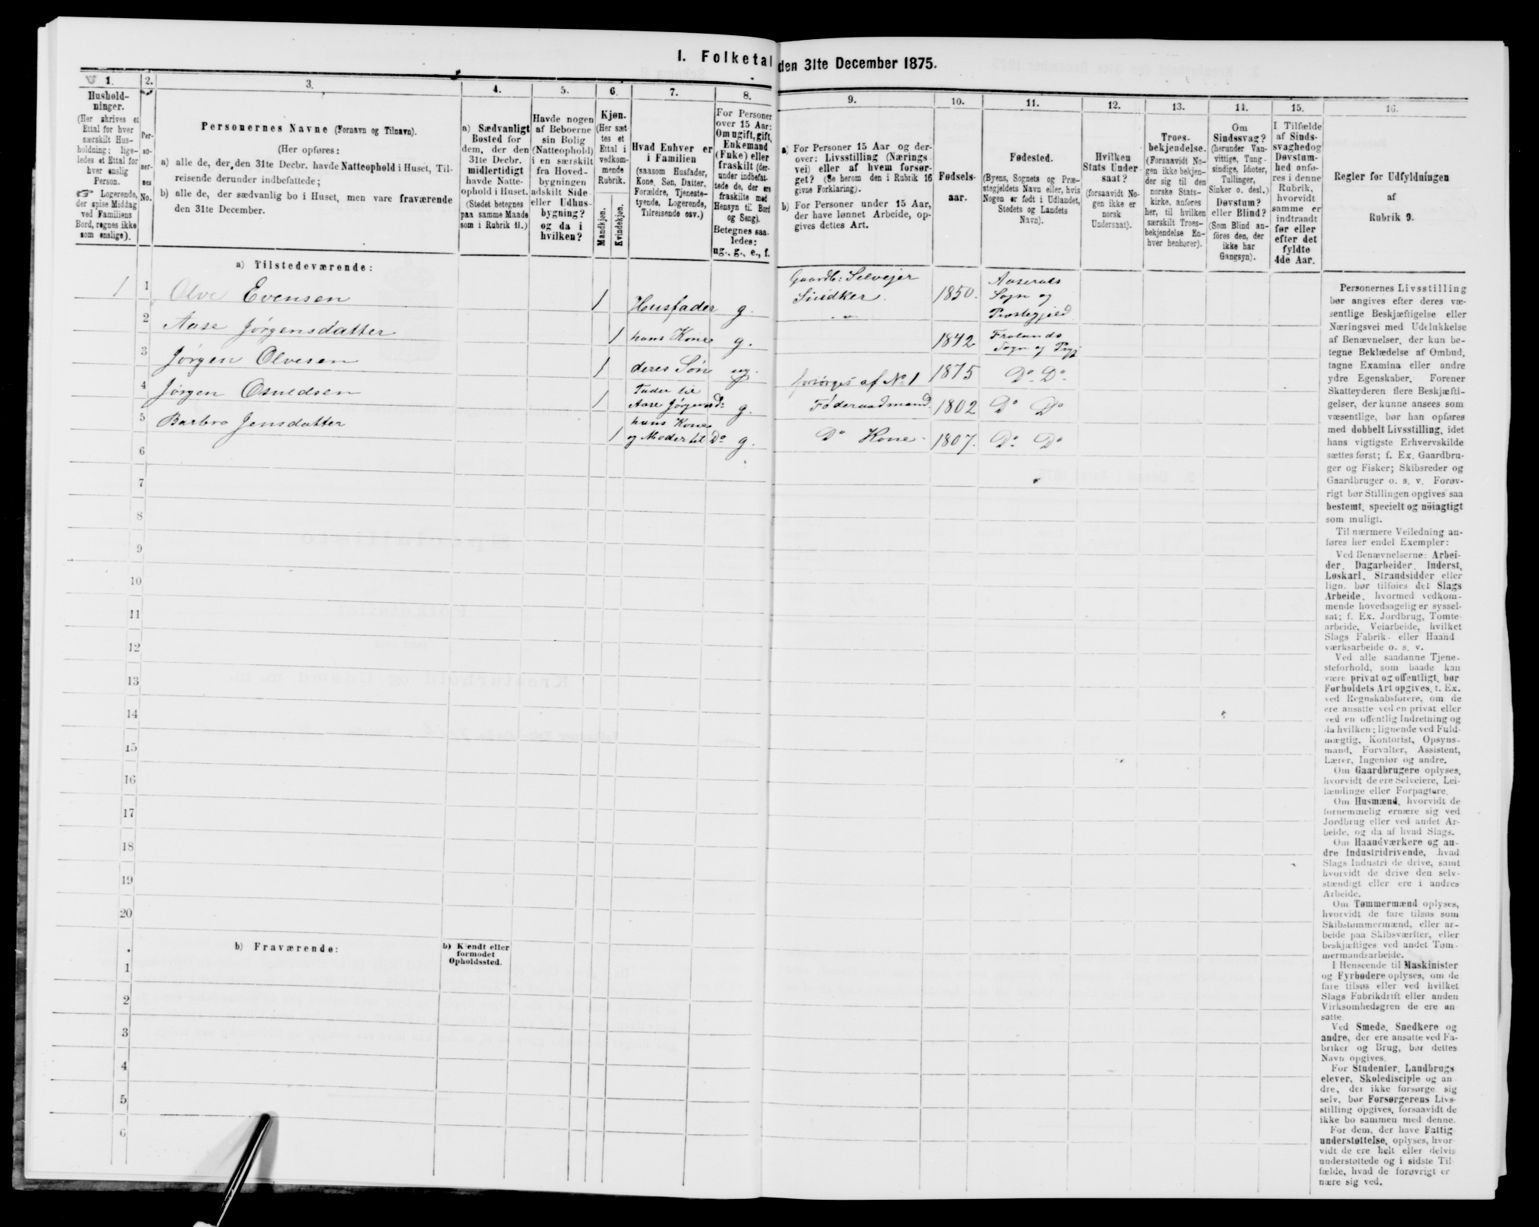 I. Folketal den 31te December 1875.
1.
Hushold-
ninger.
(Her skrives et
Ettal for hver
særskilt Hus-
holdning; lige-
ledes et Ettal for
hver enslig
Person.
Logerende,
der spise Middag
ved Familiens
Bord, regnes ikke
som enslige).
2.
Per-
so-
ner-
nes
No.
3.
Personernes Navne (Fornavn og Tilnavn).
(Her opføres:
a) alle de, der den 31te Decbr. havde Natteophold i Huset, Til-
reisende derunder indbefattede;
b) alle de, der sædvanlig bo i Huset, men vare fraværende
den 31te December.
4.
a) Sædvanligt
Bosted for
dem, der den
31te Decbr.
midlertidigt
havde Natte-
ophold i Huset.
(Stedet betegnes
paa samme Maade
som i Rubrik 11.)
5.
Havde nogen
af Beboerne
sin Bolig
(Natteophold)
i en særskilt
fra Hoved-
bygningen
adskilt Side-
eller Udhus-
bygning?
og da i
hvilken?
6.
Kjøn.
(Her sæt-
tes et
Ettal i
vedkom-
mende
Rubrik.
Mandkjøn.
Kvindekjøn.
7.
Hvad Enhver er
i Familien
(saasom Husfader,
Kone, Søn, Datter,
Forældre, Tjeneste-
tyende, Logerende,
Tilreisende osv.)
8.
For Personer
over 15 Aar:
Om ugift, gift,
Enkemand
(Enke) eller
fraskilt (der-
under indbefat-
tede de, der ere
fraskilte med
Hensyn til Bord
og Seng).
Betegnes saa-
ledes:
ug., g., e., f.
9.
a) For Personer 15 Aar og der-
over: Livsstilling (Nærings-
vei) eller af hvem forsør-
get? (Se herom den i Rubrik 16
givne Forklaring).
b) For Personer under 15 Aar,
der have lønnet Arbeide, op-
gives dettes Art.
10.
Fødsels-
aar.
11.
Fødested.
(Byens, Sognets og Præ-
stegjeldets Navn eller, hvis
Nogen er født i Udlandet,
Stedets og Landets
Navn).
12.
Hvilken
Stats Under-
saat?
(forsaavidt No-
gen ikke er
norsk
Undersaat).
13.
Troes-
bekjendelse.
(Forsaavidt No-
gen ikke bekjen-
der sig til den
norske Stats-
kirke, anføres
her, til hvilken
særskilt Troes-
bekjendelse En-
hver henhører).
14.
Om
Sindssvag?
(herunder Van-
vittige, Tung-
sindige, Idioter,
Tullinger,
Sinker o. desl.)
Døvstum?
eller Blind?
(Som Blind an-
føres den, der
ikke har
Gangsyn).
15.
I Tilfælde
af Sinds-
svaghed og
Døvstum-
hed anfø-
res i denne
Rubrik,
hvorvidt
samme er
indtraadt
før eller
efter det
fyldte
4de Aar.
16.
Regler før Udfyldningen
af
Rubrik 9.
a) Tilstedeværende:
1 1 Olve Evensen 1 Husfader g. Gaardb: Selvejer Snidker. 1850. Aaserals Sogn og Præstegjeld
2 Aase Jørgensdatter 1 hans Kone g. " 1842 Frolands Sogn og Prgj
3 Jørgen Olvesen 1 deres Søn ug. forsørges af No 1 1875 Do Do
4 Jørgen Osuldsen 1 Fader til Aase Jørgensd: g. Føderaadsmand 1802 Do Do
5 Barbro Jensdatter 1 hans Kone og Moder til Do g. Do Kone 1807. Do Do
6
7
8
9
10
11
12
13
14
15
16
17
18
19
20
b) Fraværende:
b) Kjendt eller
formodet
Opholdssted.
1
2
3
4
5
6
Personernes Livsstilling
bør angives efter deres væ-
sentlige Beskjæftigelse eller
Næringsvei med Udelukkelse
af Benævnelser, der kun be-
tegne Beklædelse af Ombud,
tagne Examina eller andre
ydre Egenskaber. Forener
Skatteyderen flere Beskjæfti-
gelser, der kunne ansees som
væsentlige, bør han opføres
med dobbelt Livsstilling, idet
hans vigtigste Erhvervskilde
sættes først; f. Ex. Gaardbru-
ger og Fisker; Skibsreder og
Gaardbruger o. s. v. Forøv-
rigt bør Stillingen opgives saa
bestemt, specielt og nøiagtigt
som muligt.
Til nærmere Veiledning an-
føres her endel Exempler:
Ved Benævnelserne: Arbei-
der, Dagarbeider, Inderst,
Løskarl, Strandsidder eller
lign. bør tilføies det Slags
Arbeide, hvormed vedkom-
mende hovedsagelig er syssel-
sat; f. Ex. Jordbrug, Tomte-
arbeide, Veiarbeide, hvilket
Slags Fabrik- eller Haand-
værksarbeide o. s. v.
Ved alle saadanne Tjene-
steforhold, som baade kan
være privat og offentligt, bør
Forholdets Art opgives, t. Ex.
ved Regnskabsførere, om de
ere ansatte ved en privat eller
ved en offentlig Indretning og
da hvilken; lignende ved Fuld-
mægtig, Kontorist, Opsyns-
mand, Forvalter, Assistent,
Lærer, Ingeniør og andre.
Om Gaardbrugere oplyses,
hvorvidt de ere Selveiere, Lei-
lændinge eller Forpagtere.
Om Husmænd, hvorvidt de
fornemmelig ernære sig ved
Jordbrug eller ved andet Ar-
beide, og da af hvad Slags.
Om Haandværkere og an-
dre Industridrivende, hvad
Slags Industri de drive, samt
hvorvidt de drive den selv-
stændigt eller ere i andres
Arbeide.
Om Tømmermænd oplyses,
hvorvidt de fare tilsøs som
Skibstømmermænd, eller ar-
beide paa Skibsværfter, eller
beskjæftiges ved andet Tøm-
mermandsarbeide.
I Henseende til Maskinister
og Fyrbødere oplyses, om de
fare tilsøs eller ved hvilket
Slags Fabrikdrift eller anden
Virksomhedsgren de ere an-
satte.
Ved Smede, Snedkere og
andre, der ere ansatte ved Fa-
briker og Brug, bør dettes
Navn opgives.
For Studenter, Landbrugs-
elever, Skoledisciple og an-
dre, der ikke forsørge sig
selv, bør Forsørgerens Livs-
stilling opgives, forsaavidt de
ikke bo sammen med denne.
For dem, der have Fattig-
understøttelse, oplyses, hvor-
vidt de ere helt eller delvis
understøttede og i sidste Til-
fælde, hvad de forøvrigt er-
nære sig ved.